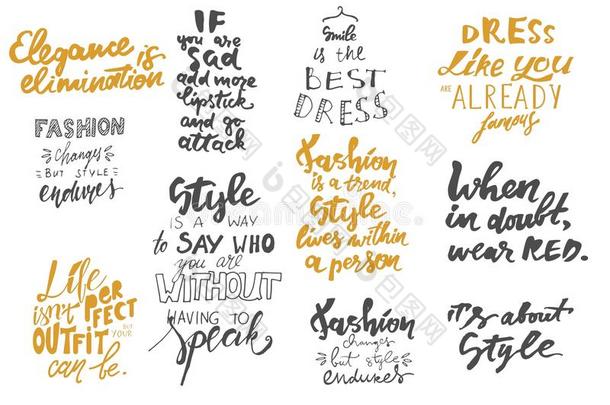 Elegance is
elimination
IF
you are
sad
add more
lipstick
and go
attack
Smile
is the
BEST
DRESS
DRESS
like you
ARE ALREADY
famous
FASHION
changes
BUT STYLE
endures
Style
IS A WAY
to SAY WHO
you are
WITHOUT
HAVING TO
speak
Fashion
is a trend,
Style
lives within
a person
When
in doubt,
wear RED.
Life
isn't PERFECT
BUT YOUR
OUTFIT
can be.
Fashion
changes
but style
endures
it's about
Style